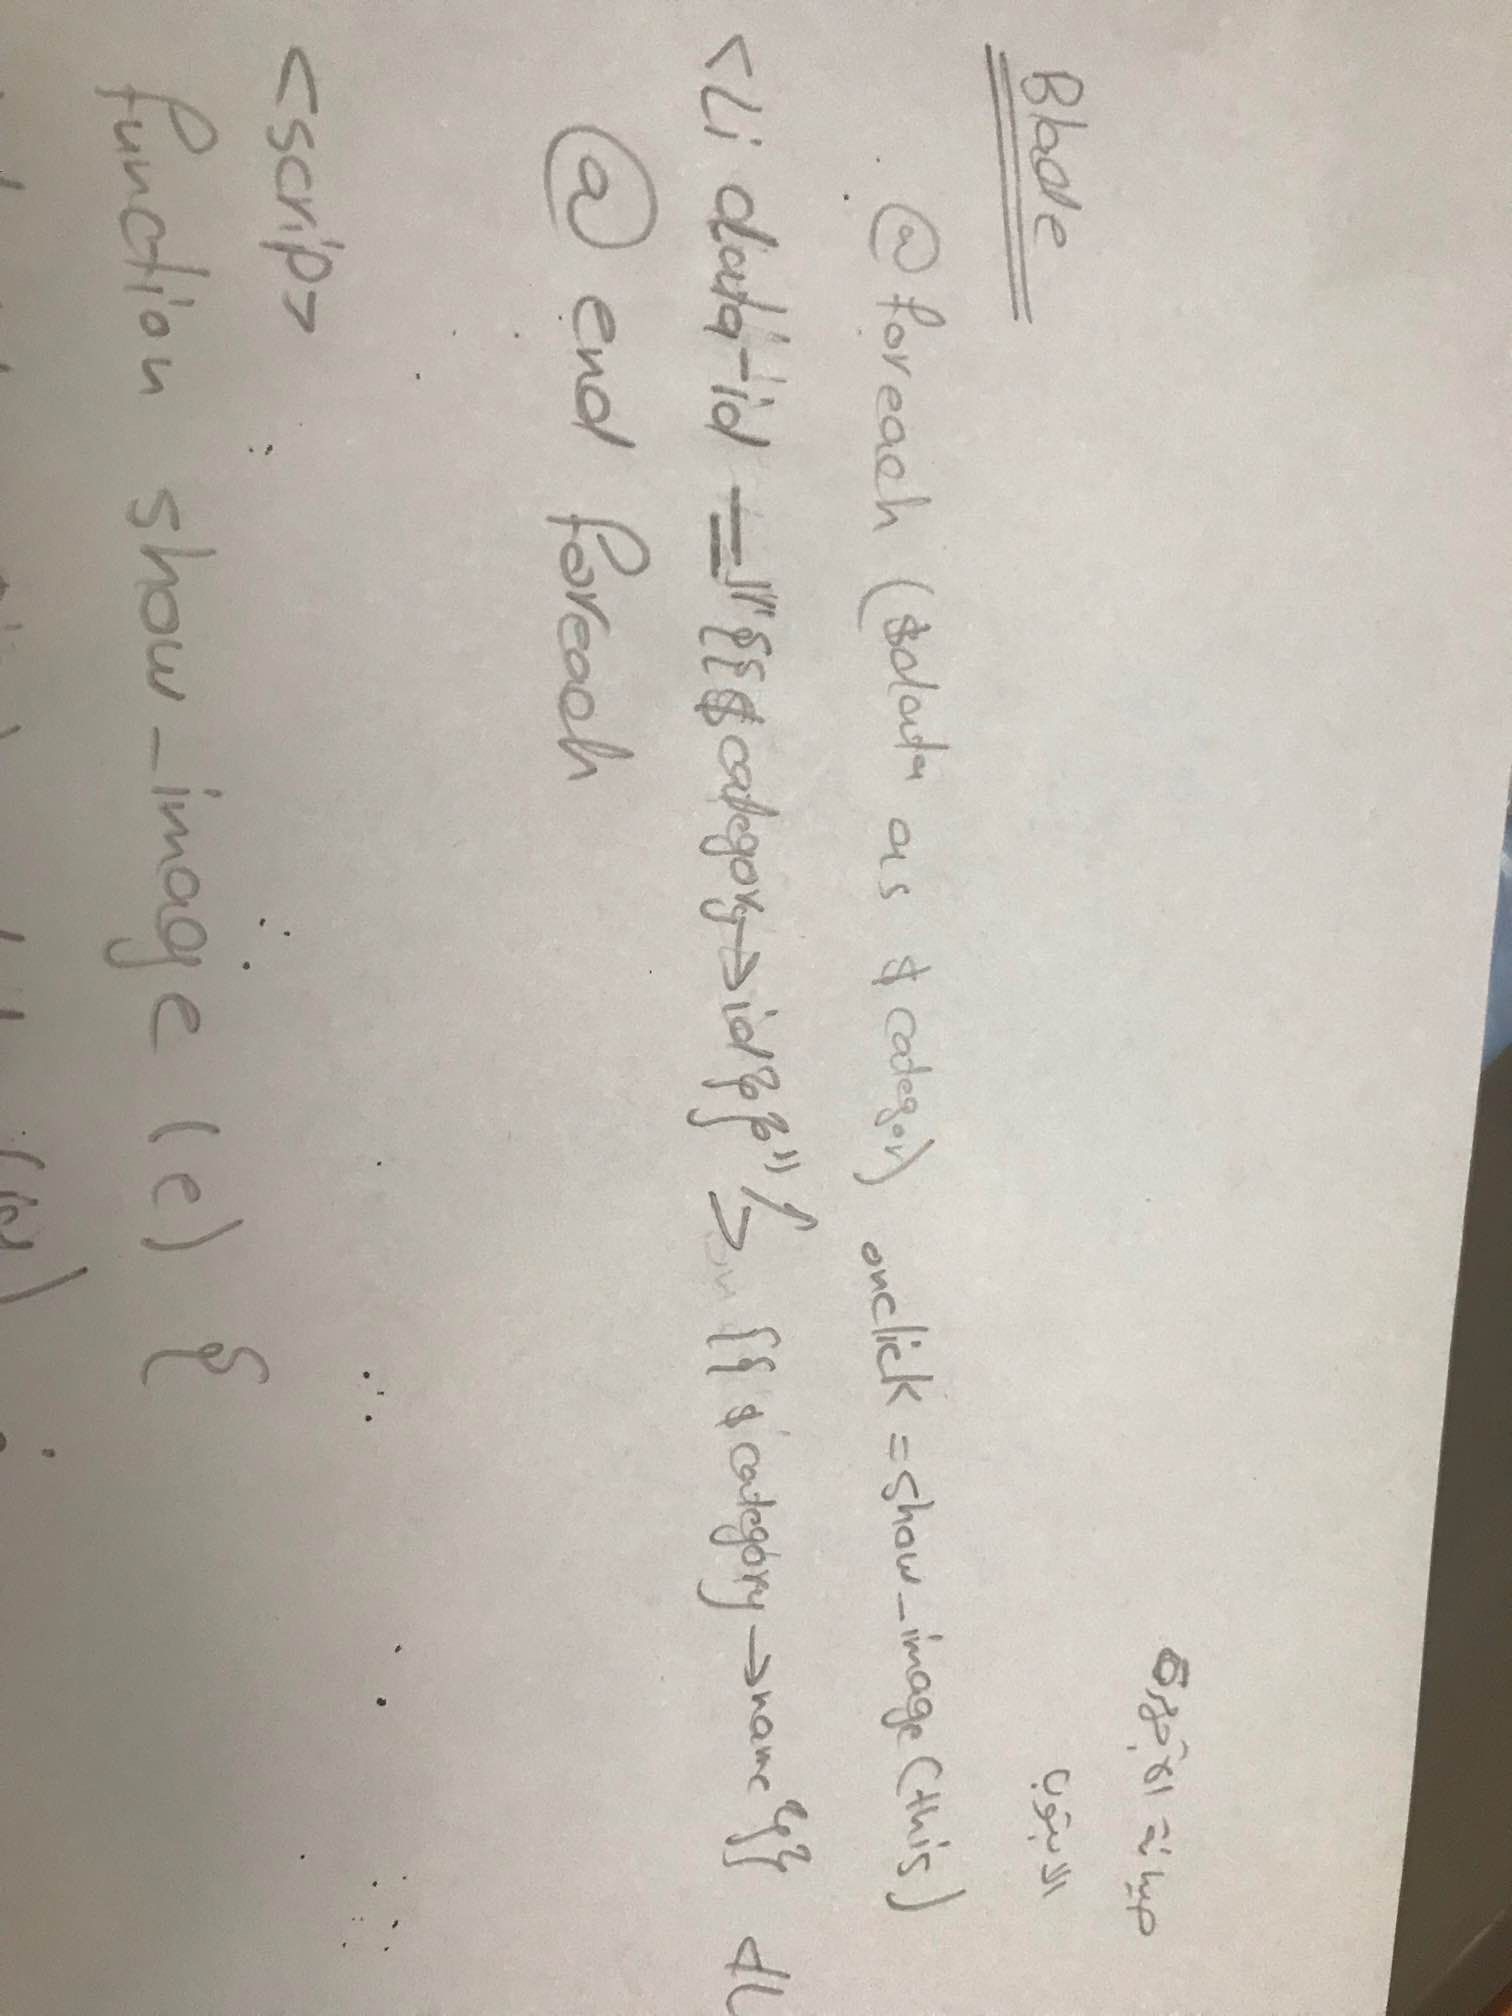 صيانة الأجهزة
اللابتوب
Blade
@foreach ($data as $categor) onclick=show_image(this)
<Li data-id="{{$category->id}}"/> {{$category->name}}
@end foreach
<scrip>
function show_image (e) {